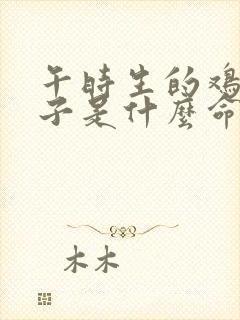 午時生的鸡
子是什麼命
木木